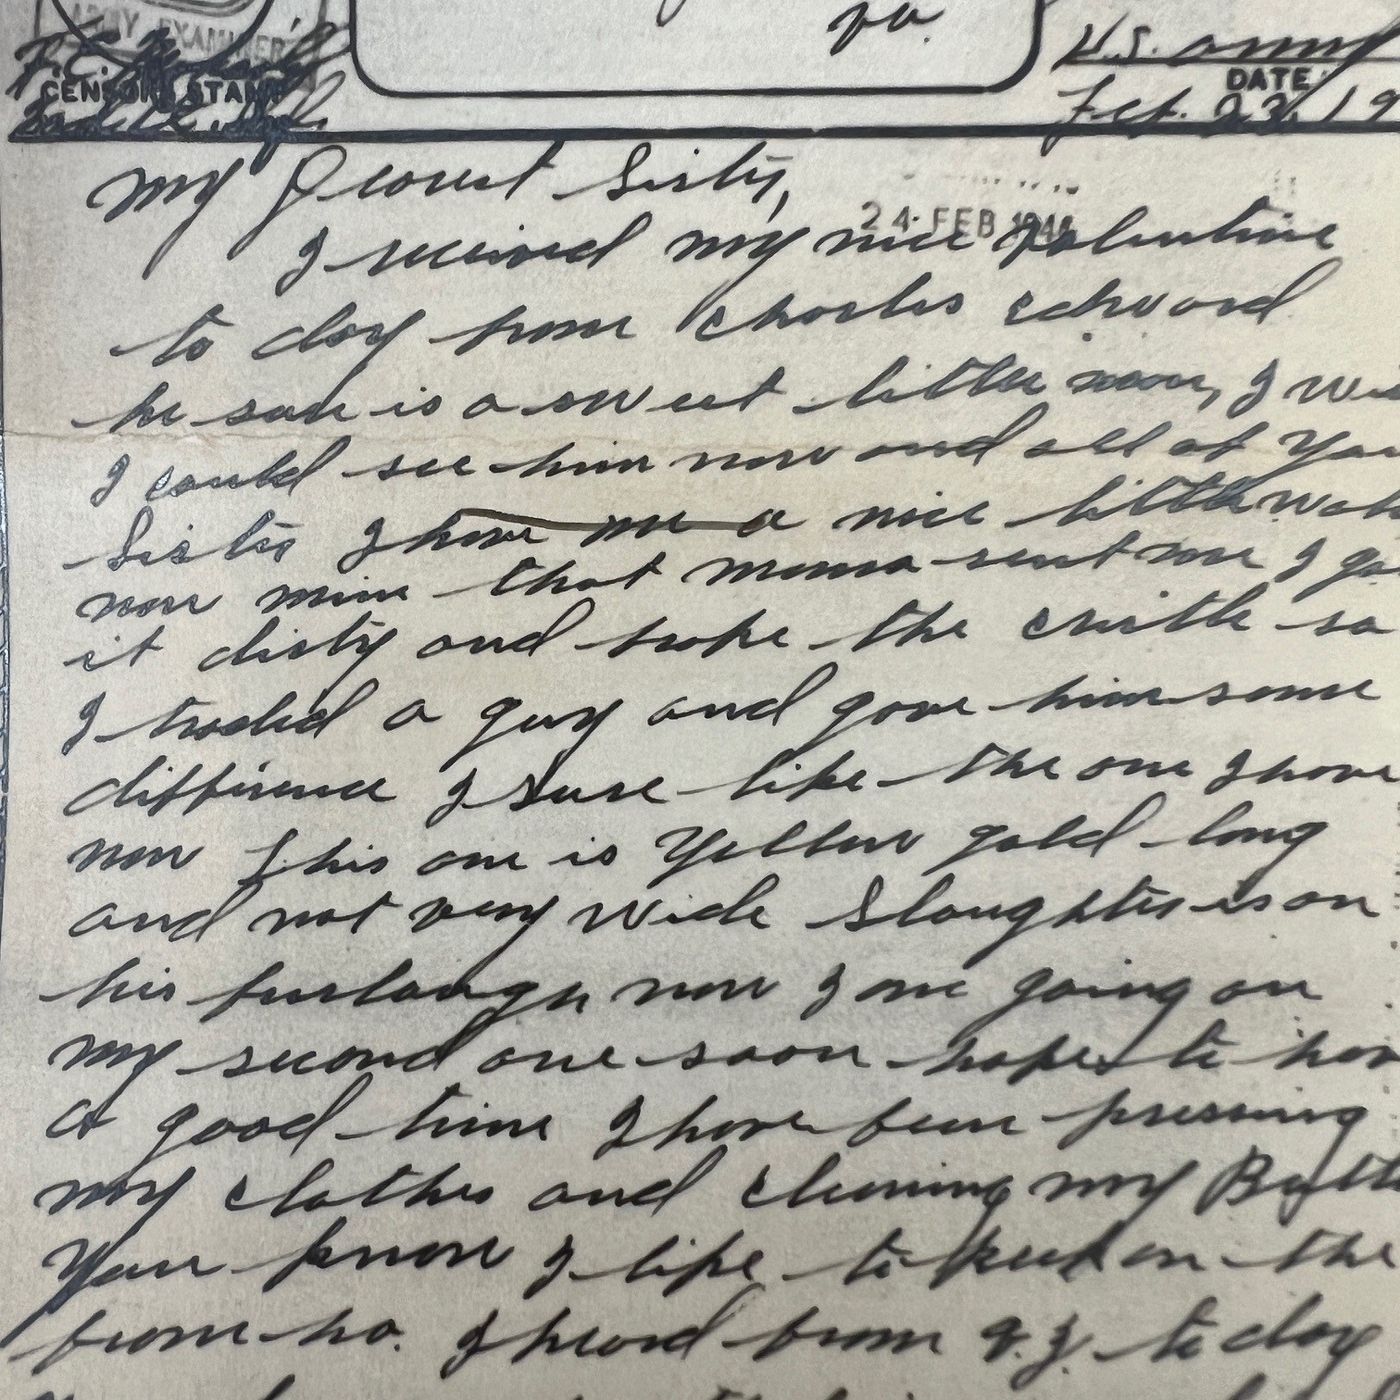 ARMY EXAMINER
CENSOR'S STAMP
va.
U.S. army
DATE
Feb. 23, 19
24 FEB 194
My Dearest Sister,
I received my nice valentine
to day from Charles edward
he sure is a sweet little man, I wi
I could see him now and all of you
Sister I have me a nice little wat
now mine that mama sent me I go
it dirty and broke the cristle so
I traded a guy and gave him some
difference I sure like the one I have
now This one is yellow gold long
and not very wide Slaughter is on
his furlough now I am going on
my second one soon hope to hav
a good time I have been pressing
my clothes and cleaning my Butt
You know I like to on the
from ha. I heard from to day